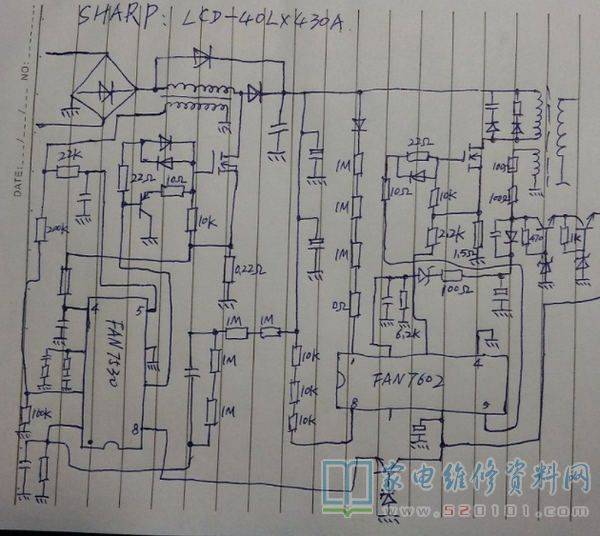 SHARP: LCD-40LX430A.
DATE: ___/___/___ NO:
22K
200K
22Ω
10Ω
10K
0.22Ω
4
5
FAN7530
8
100K
1M
1M
1M
1M
10K
10K
10K
1M
1M
1M
0Ω
22Ω
10Ω
10K
2.2K
1.5Ω
100Ω
100Ω
100Ω
6.2K
470
1K
1
4
FAN7602
8
5
家电维修资料网
www.520101.com